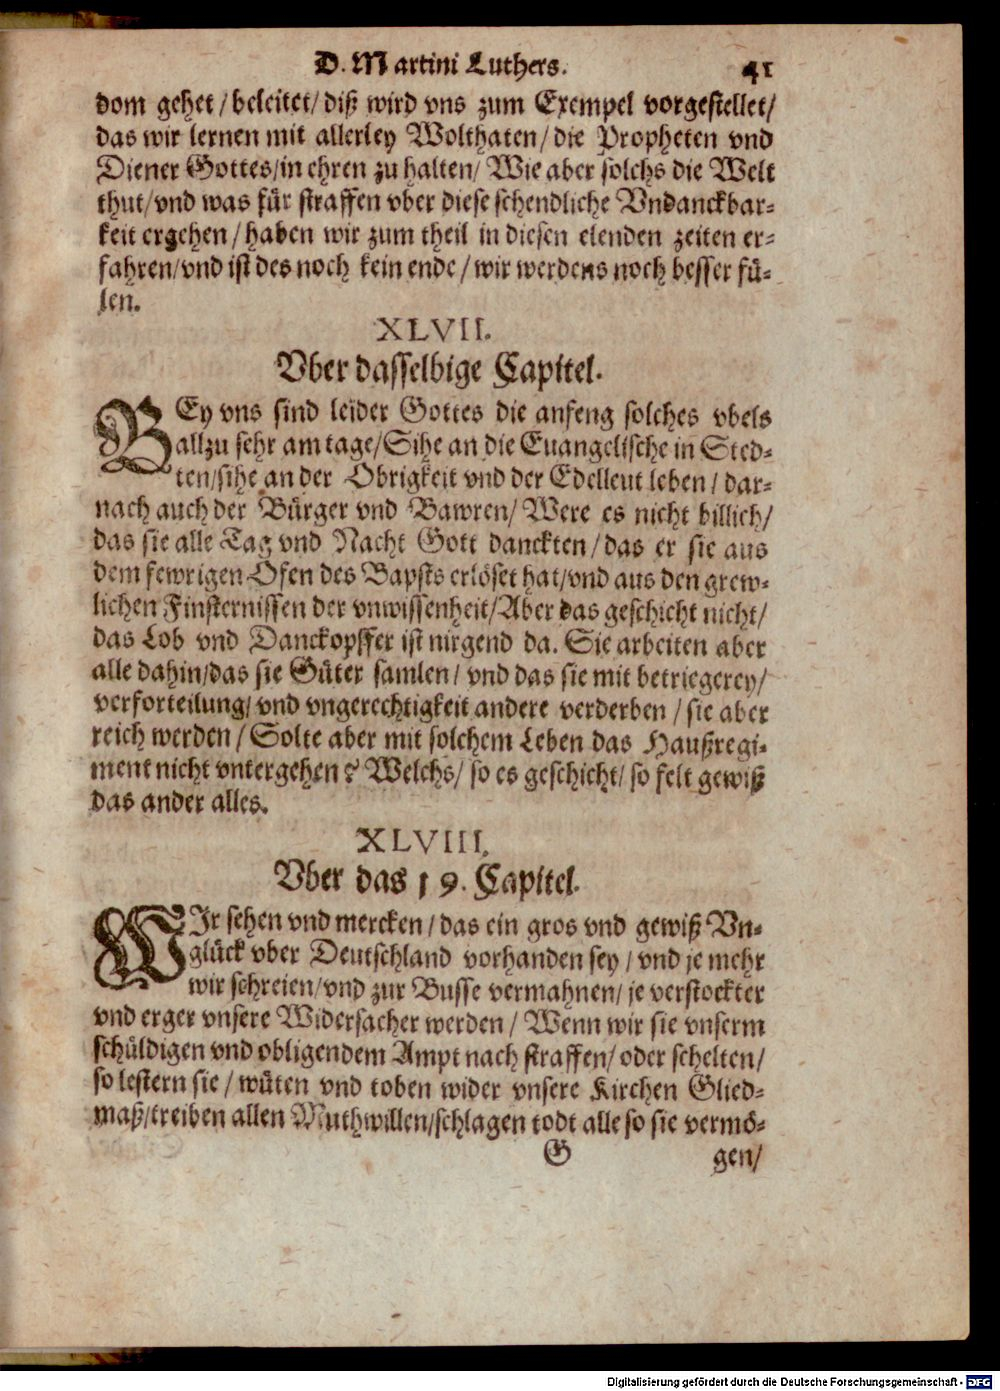 D. Martini Luthers. 41
dom gehet/beleitet/diß wird vns zum Exempel vorgestellet/
das wir lernen mit allerley Wolthaten/die Propheten vnd
Diener Gottes/in ehren zu halten/Wie aber solchs die Welt
thut/vnd was für straffen vber diese schendliche Vndanckbar-
keit ergehen/haben wir zum theil in diesen elenden zeiten er-
fahren/vnd ist des noch kein ende/wir werdens noch besser fü-
len.
XLVII.
Vber dasselbige Capitel.
BEy vns sind leider Gottes die anfeng solches vbels
allzu sehr am tage/Sihe an die Euangelische in Sted-
ten/sihe an der Obrigkeit vnd der Edelleut leben/dar-
nach auch der Bürger vnd Bawren/Were es nicht billich/
das sie alle Tag vnd Nacht Gott danckten/das er sie aus
dem fewrigen Ofen des Bapsts erlöset hat/vnd aus den grew-
lichen Finsternissen der vnwissenheit/Aber das geschicht nicht/
das Lob vnd Danckopffer ist nirgend da. Sie arbeiten aber
alle dahin/das sie Güter samlen/vnd das sie mit betriegerey/
verforteilung/vnd vngerechtigkeit andere verderben/sie aber
reich werden/Solte aber mit solchem Leben das Haußregi-
ment nicht vntergehen? Welchs/so es geschicht/so felt gewiß
das ander alles.
XLVIII.
Vber das 19. Capitel.
WIr sehen vnd mercken/das ein gros vnd gewiß Vn-
glück vber Deutschland vorhanden sey/vnd je mehr
wir schreien/vnd zur Busse vermahnen/je verstockter
vnd erger vnsere Widersacher werden/Wenn wir sie vnserm
schüldigen vnd obligendem Ampt nach straffen/oder schelten/
so lestern sie/wüten vnd toben wider vnsere Kirchen Glied-
maß/treiben allen Muthwillen/schlagen todt alle so sie vermö-
G gen/
Digitalisierung gefördert durch die Deutsche Forschungsgemeinschaft - DFG